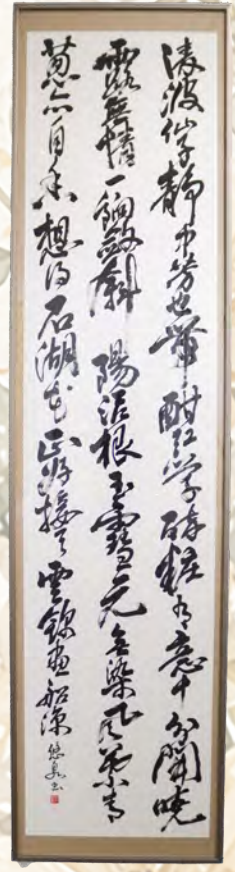 凌波仙子靜中芳也帯酣紅学酔粧有意十分開暁
露無情一餉斂斜陽泥根玉雪元無染風葉青
葱亦自香想得石湖花正好接天雲錦画船涼